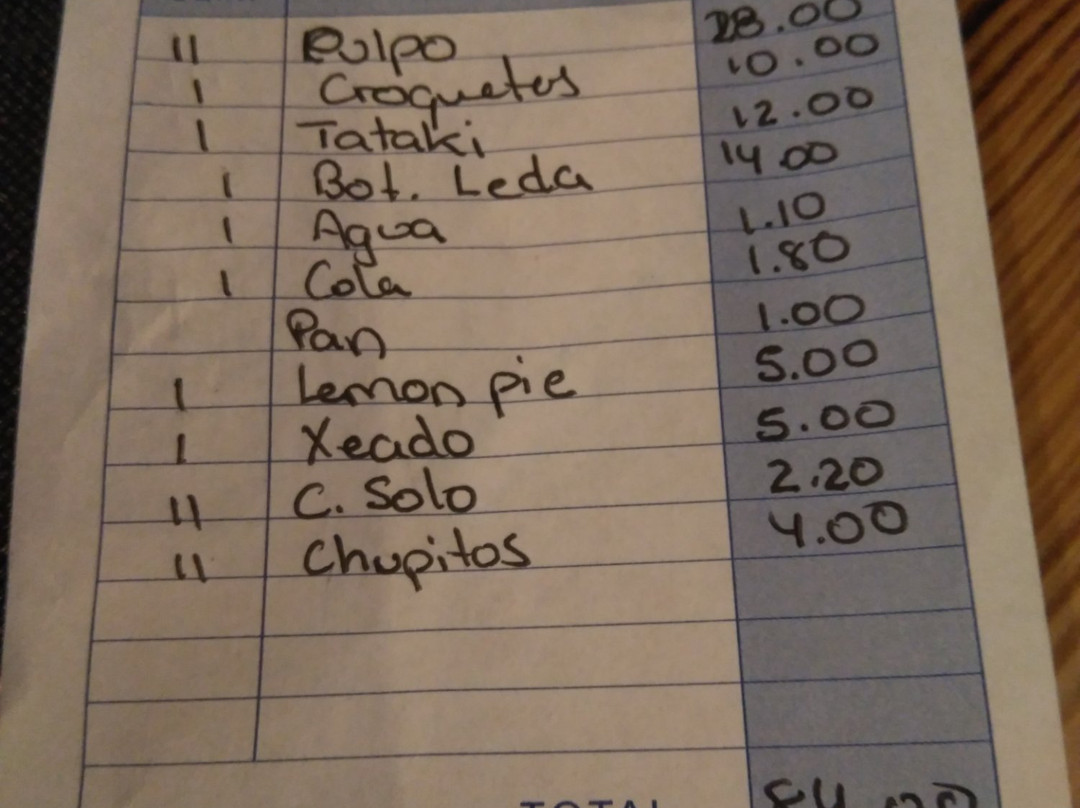 11 Pulpo 28.00
1 Croquetas 10.00
1 Tataki 12.00
1 Bot. Leda 14 00
1 Agua 1.10
1 Cola 1.80
Pan 1.00
1 Lemon pie 5.00
1 Xeado 5.00
11 C. Solo 2.20
11 Chupitos 4.00
TOTAL